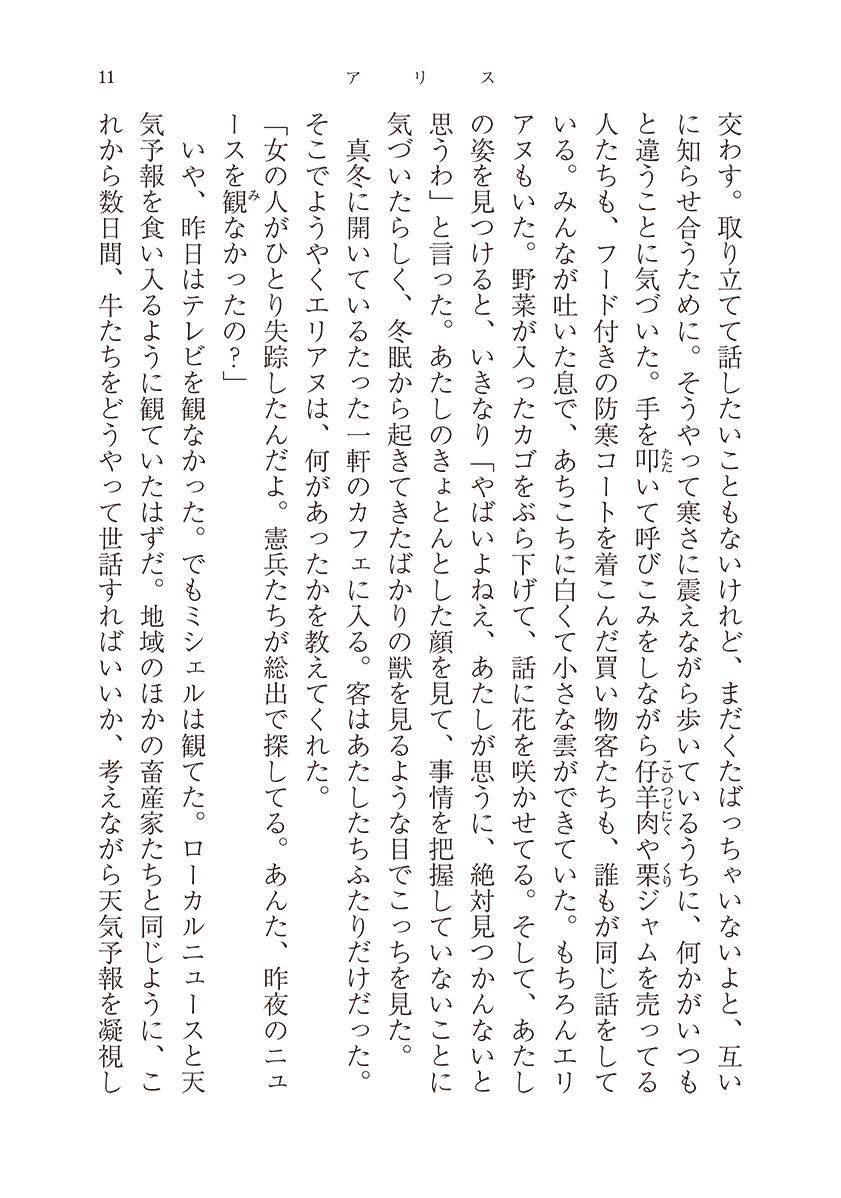 11
アリス
交わす。取り立てて話したいこともないけれど、まだくたばっちゃいないよと、互い
に知らせ合うために。そうやって寒さに震えながら歩いているうちに、何かがいつも
と違うことに気づいた。手を叩いて呼びこみをしながら仔羊肉や栗ジャムを売ってる
たた
こひつじにく
くり
人たちも、フード付きの防寒コートを着こんだ買い物客たちも、誰もが同じ話をして
いる。みんなが吐いた息で、あちこちに白くて小さな雲ができていた。もちろんエリ
アヌもいた。野菜が入ったカゴをぶら下げて、話に花を咲かせてる。そして、あたし
の姿を見つけると、いきなり「やばいよねえ、あたしが思うに、絶対見つかんないと
思うわ」と言った。あたしのきょとんとした顔を見て、事情を把握していないことに
気づいたらしく、冬眠から起きてきたばかりの獣を見るような目でこっちを見た。
真冬に開いているたった一軒のカフェに入る。客はあたしたちふたりだけだった。
そこでようやくエリアヌは、何があったかを教えてくれた。
「女の人がひとり失踪したんだよ。憲兵たちが総出で探してる。あんた、昨夜のニュ
ースを観なかったの？」
み
いや、昨日はテレビを観なかった。でもミシェルは観てた。ローカルニュースと天
気予報を食い入るように観ていたはずだ。地域のほかの畜産家たちと同じように、こ
れから数日間、牛たちをどうやって世話すればいいか、考えながら天気予報を凝視し